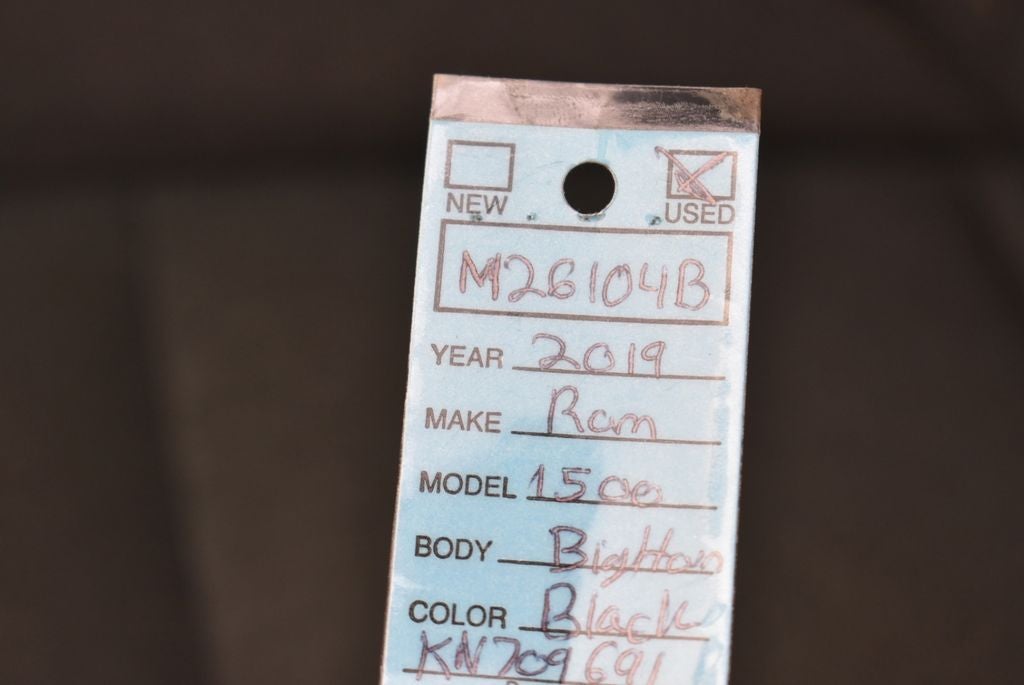 NEW USED
M26104B
YEAR 2019
MAKE Ram
MODEL 1500
BODY Bighorn
COLOR Black
KN709691